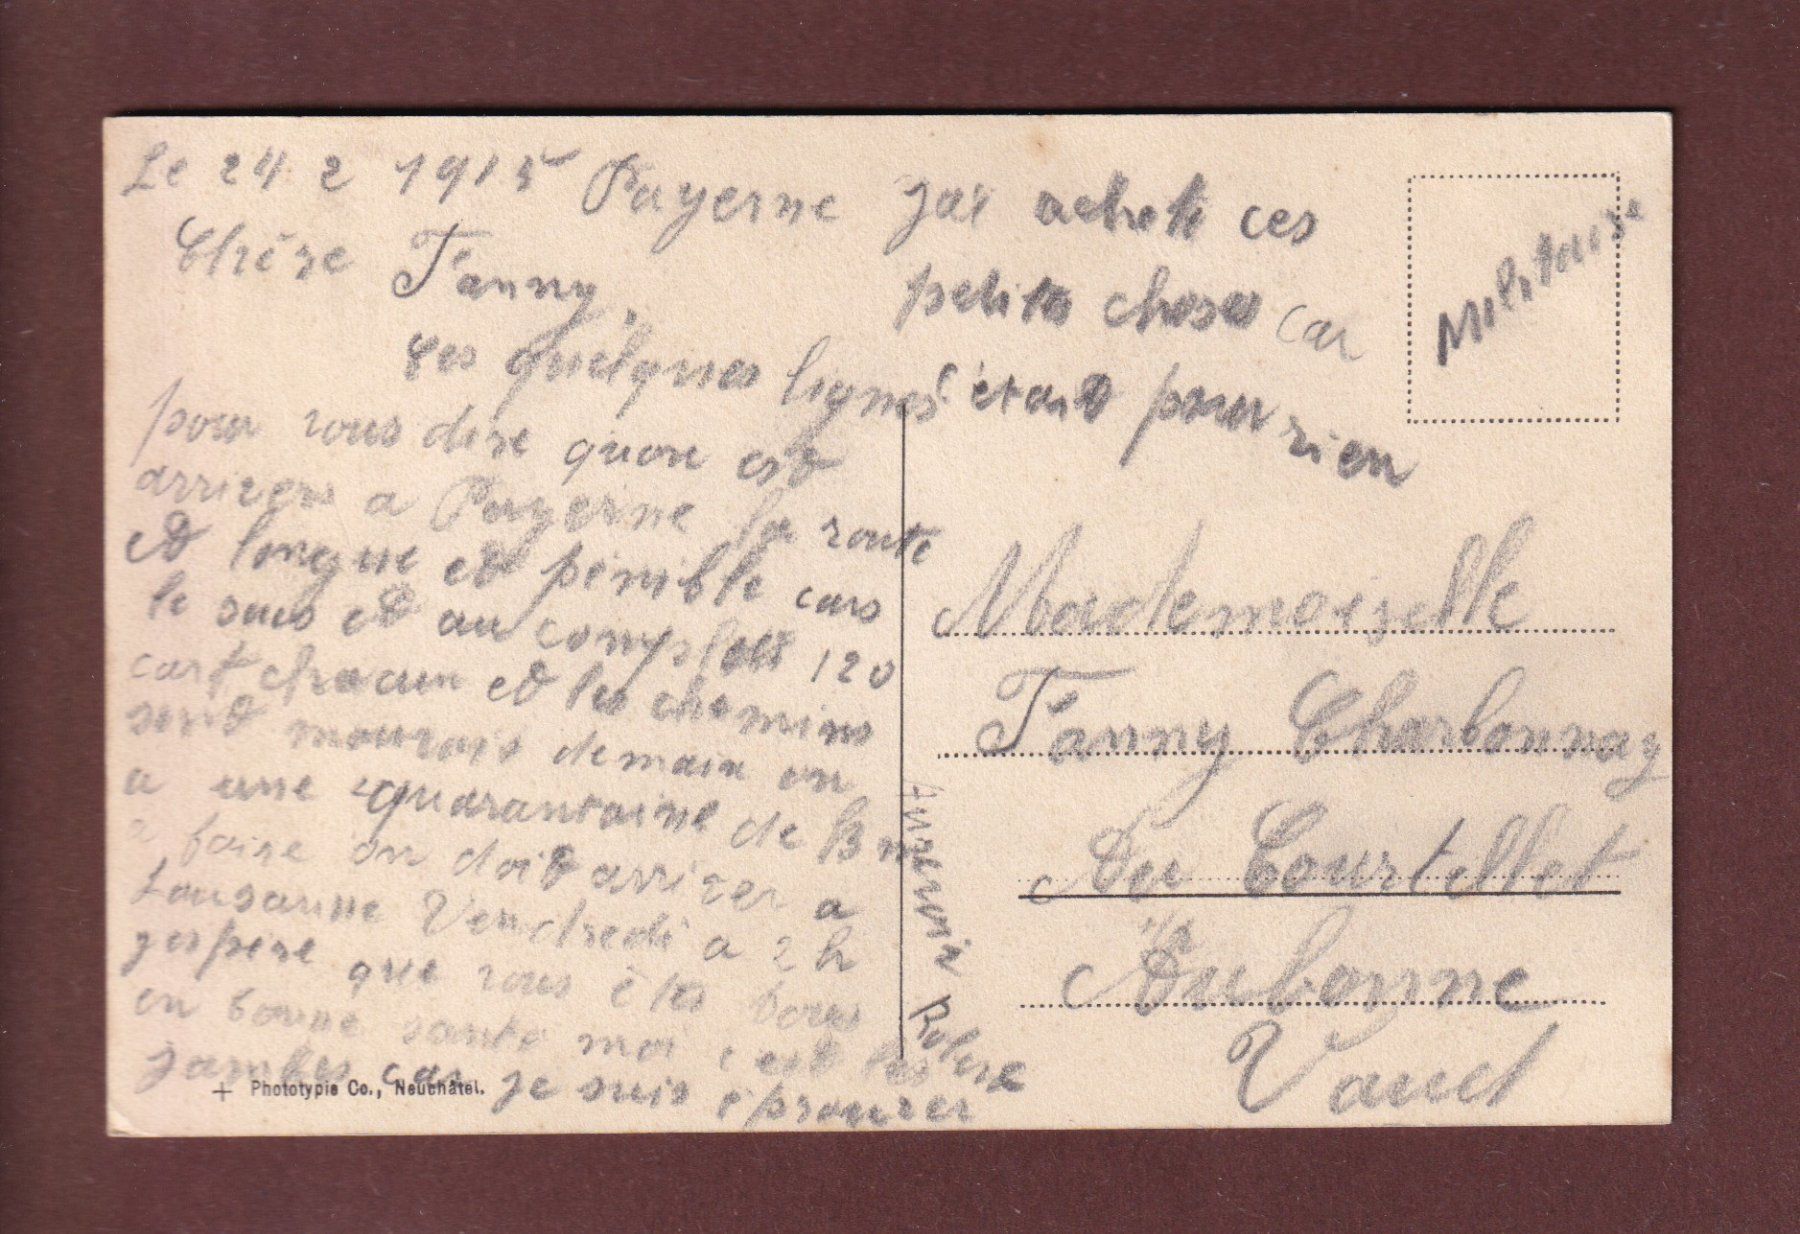 Le 24 2 1915 Payerne
Chère Fanny,
Ses quelques lignes
pour vous dire quon est
arrivers a Payerne la route
et longue et pénible cars
le sacs et au complett 120
cart chacun et les chemins
sont mouvais demain on
a une quarantaine de km
a faire on doit arriver a
Lausanne Vendredi a 2 h
jespère que vous êtes tous
en bonne santé moi c'est les
jambes car je suis éprouver
jai acheté ces
petites choses car
c'était pour rien
Aurevoir Robert
Militaire
Mademoiselle
Fanny Charbonnay
Au Courtillet
s/s
Aubonne
Vaud
+ Phototypie Co., Neuchâtel.